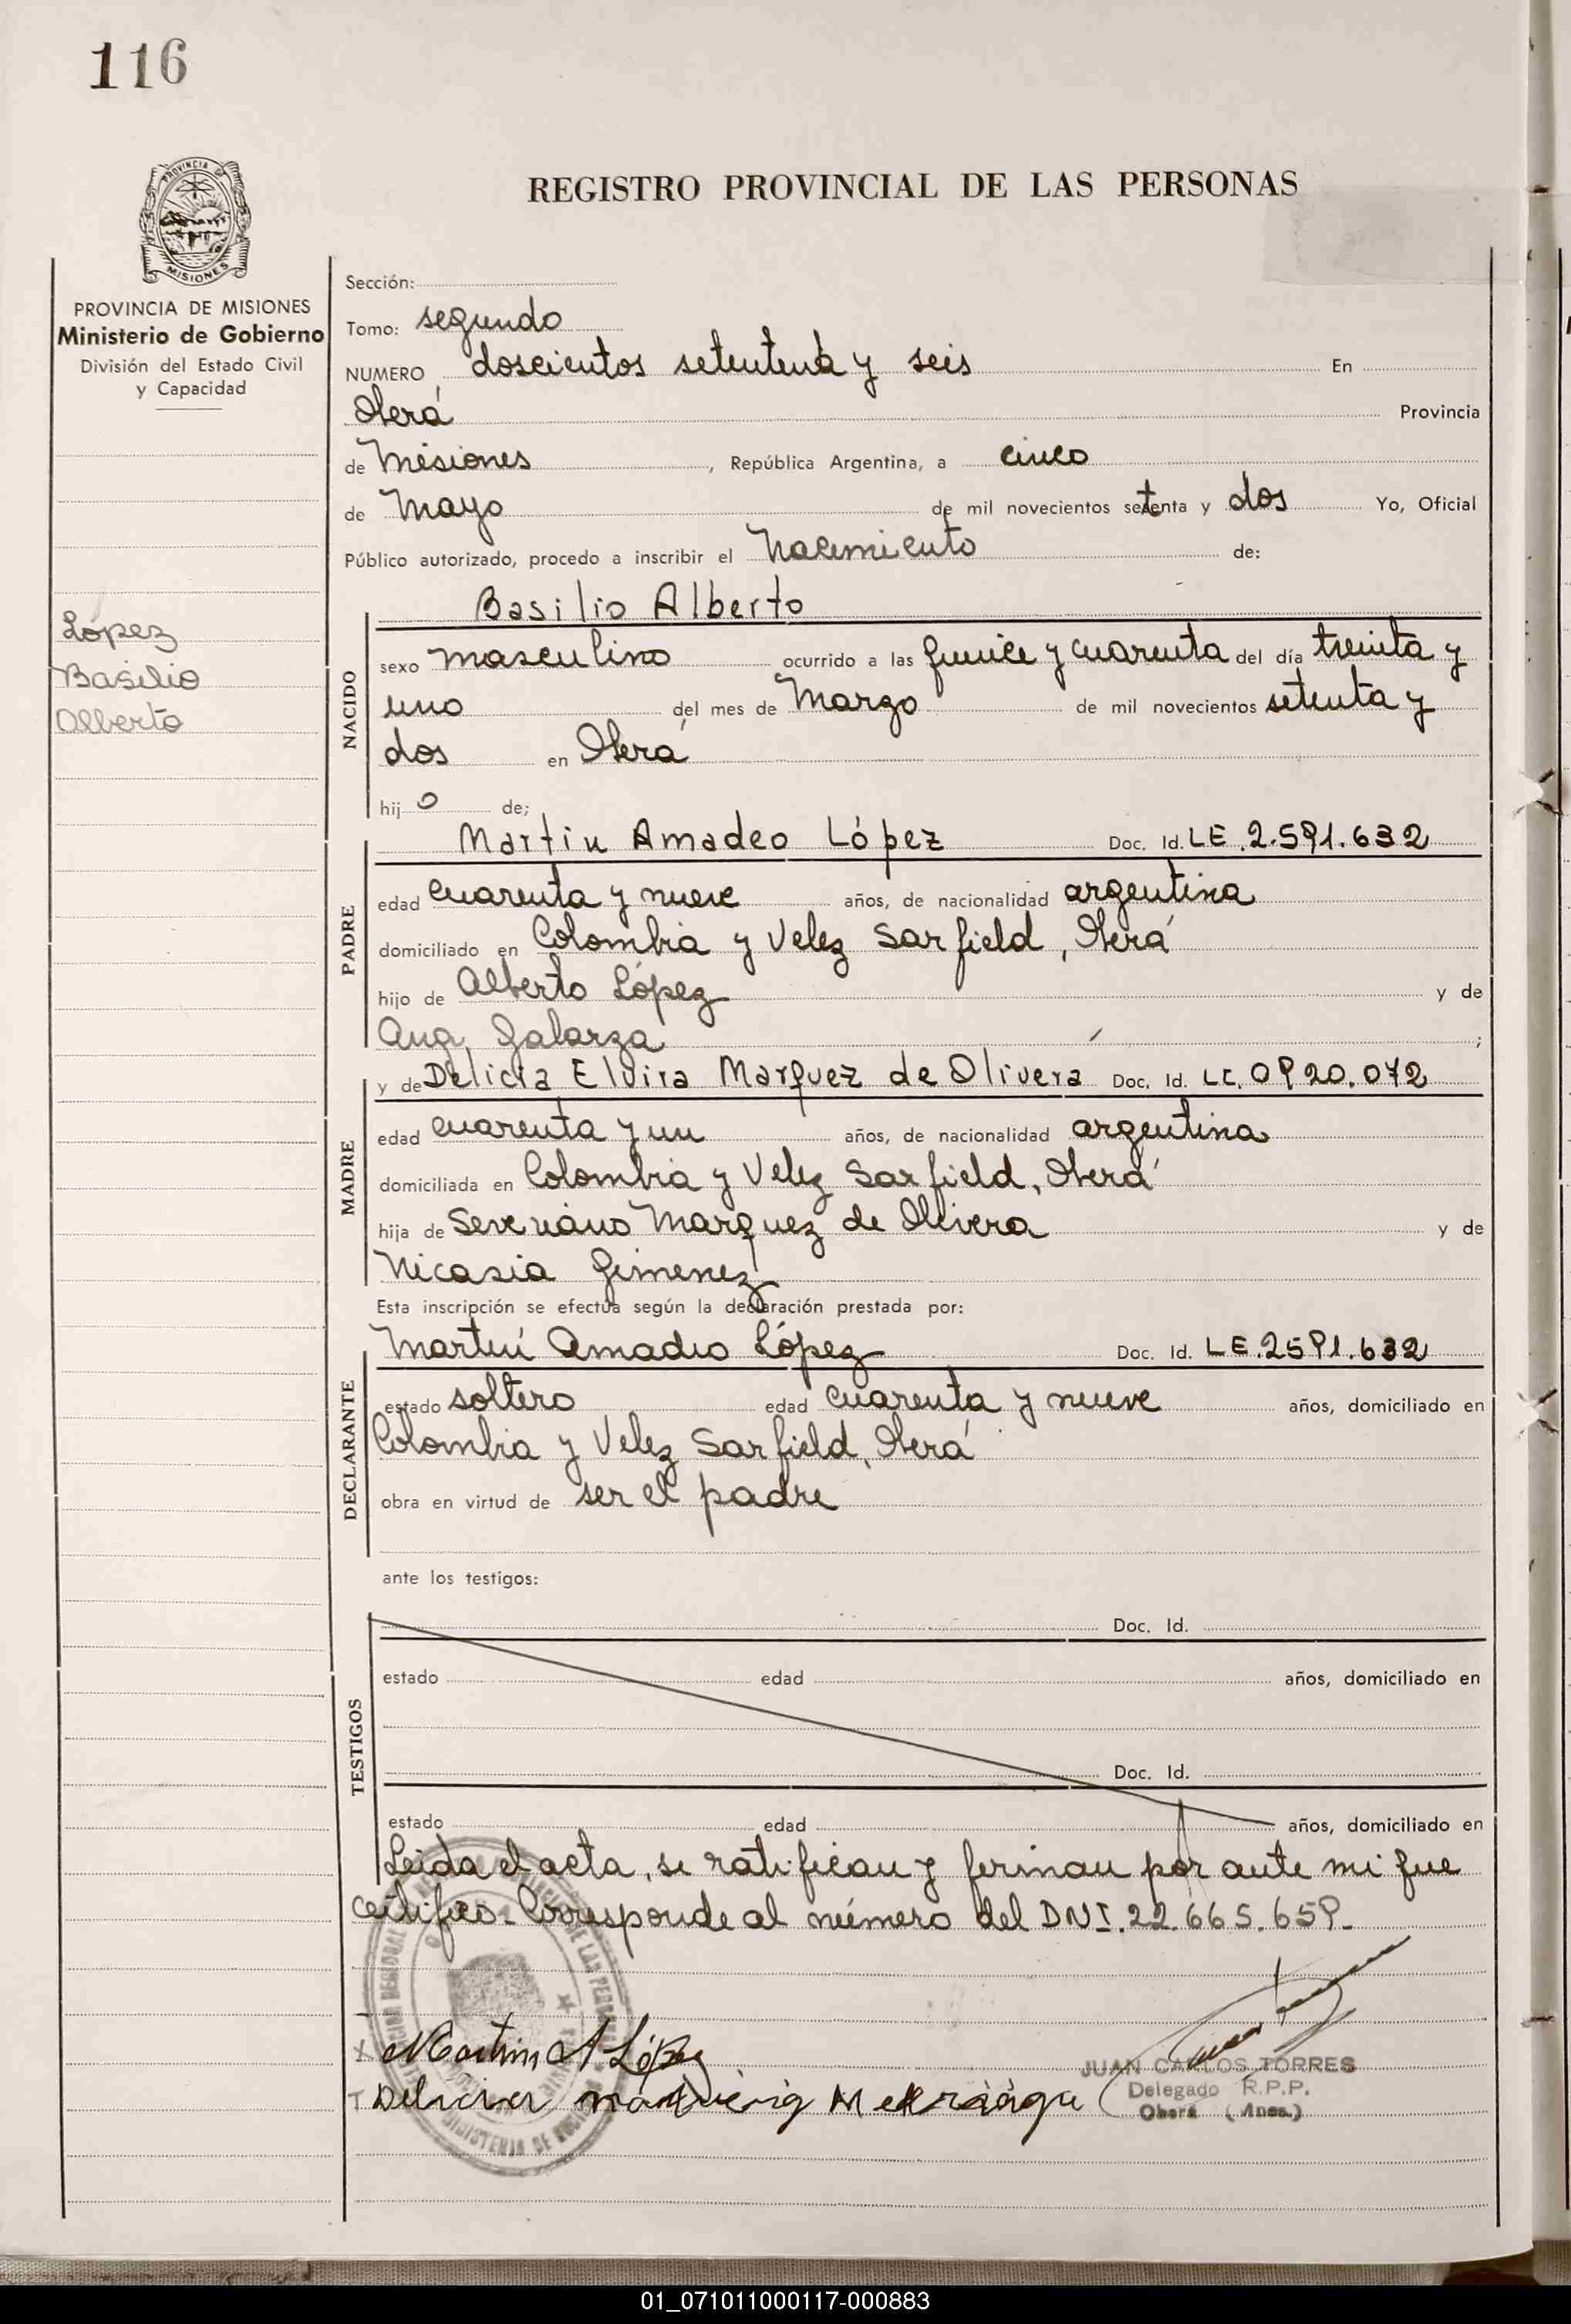 116
PROVINCIA DE
MISIONES
REGISTRO PROVINCIAL DE LAS PERSONAS
PROVINCIA DE MISIONES
Ministerio de Gobierno
División del Estado Civil
y Capacidad
López
Basilio
Alberto
Sección:
Tomo: segundo
NUMERO doscientos setentená y seis En
Oberá Provincia
de Misiones, República Argentina, a cinco
de Mayo de mil novecientos setenta y dos Yo, Oficial
Público autorizado, procedo a inscribir el Nacimiento de:
Basilio Alberto
NACIDO
sexo masculino ocurrido a las quince y cuarenta del día treinta y
uno del mes de Marzo de mil novecientos setenta y
dos en Oberá
hijo de;
Martín Amadeo López Doc. Id. LE.2.591.632
PADRE
edad cuarenta y nueve años, de nacionalidad argentina
domiciliado en Colombia y Velez Sarfield, Oberá
hijo de Alberto López y de
Ana Galarza;
y de Delicia Elvira Marquez de Olivera Doc. Id. LC.0920.072
MADRE
edad cuarenta y un años, de nacionalidad argentina
domiciliada en Colombia y Velez Sarfield, Oberá
hija de Severiano Marquez de Olivera y de
Nicasia Gimenez
Esta inscripción se efectúa según la declaración prestada por:
Martín Amadeo López Doc. Id. LE.2591.632
DECLARANTE
estado soltero edad cuarenta y nueve años, domiciliado en
Colombia y Velez Sarfield, Oberá
obra en virtud de ser el padre
ante los testigos:
Doc. Id.
TESTIGOS
estado edad años, domiciliado en
Doc. Id.
estado edad años, domiciliado en
Leida el acta, se ratifican y firman por ante mi que
certifico. Corresponde al número del DNI.22.665.659-
Martin A López
JUAN CARLOS TORRES
Delegado R.P.P.
Oberá (Mnes.)
01_071011000117-000883